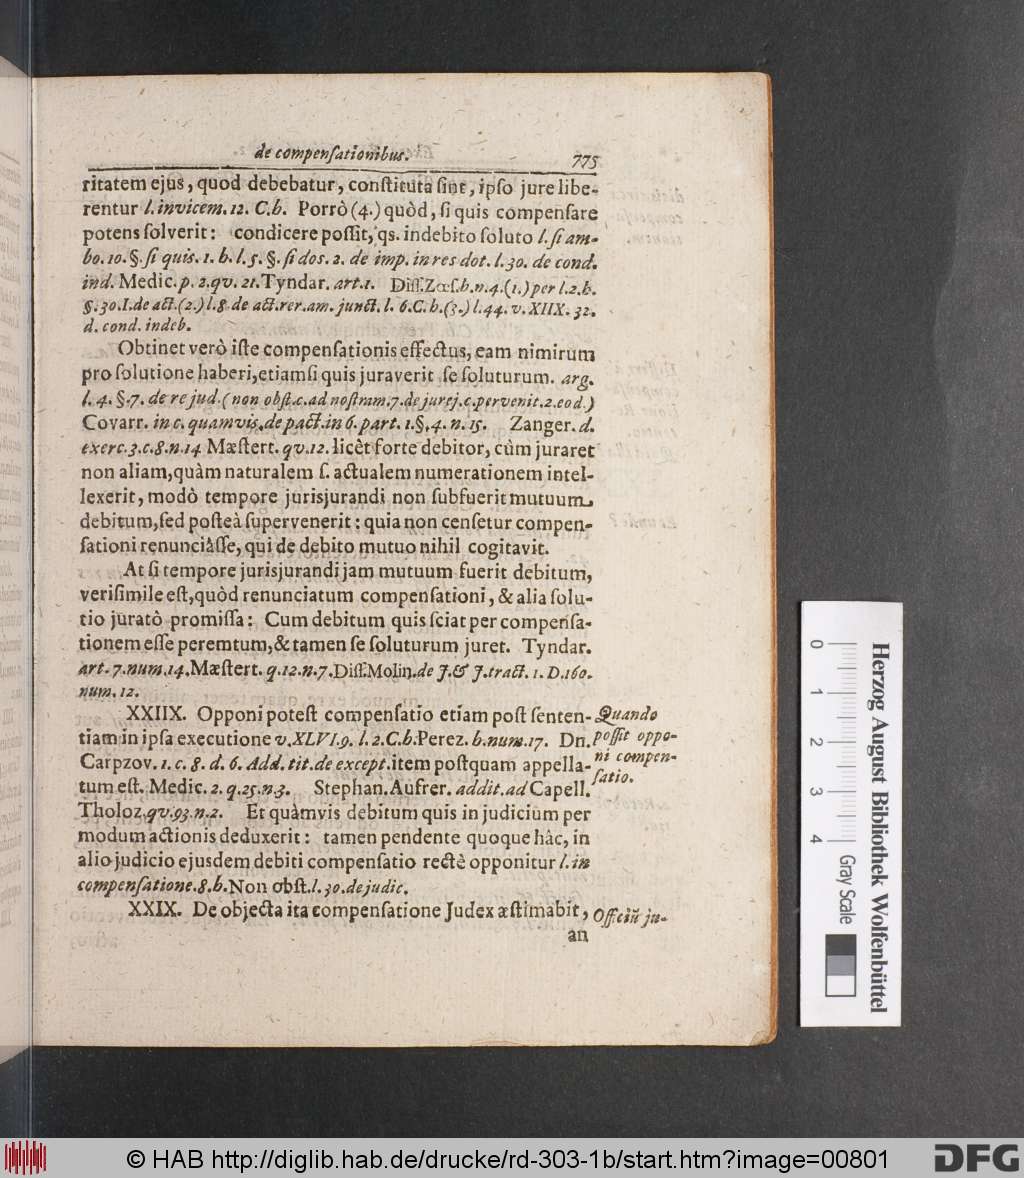 de compenſationibus. 775
ritatem ejus, quod debebatur, conſtituta ſint, ipſo jure libe-
rentur l. invicem. 12. C. h. Porrò (4.) quòd, ſi quis compenſare
potens ſolverit: condicere poſſit, qs. indebito ſoluto l. ſi am-
bo. 10. §. ſi quis. 1. h. l. 5. §. ſi dos. 2. de imp. in res dot. l. 30. de cond.
ind. Medic. p. 2. qv. 21. Tyndar. art. 1. Diſſ. Zœſ. h. n. 4. (1.) per l. 2. h.
§. 30. I. de act. (2.) l. 8. de act. rer. am. junct. l. 6. C. h. (3.) l. 44. v. XIIX. 32.
d. cond. indeb.
Obtinet verò iſte compenſationis effectus, eam nimirum
pro ſolutione haberi, etiamſi quis juraverit ſe ſoluturum. arg.
l. 4. §. 7. de re jud. (non obſt. c. ad noſtram. 7. de jurej. c. pervenit. 2. eod.)
Covarr. in c. quamvis. de pact. in 6. part. 1. §. 4. n. 15. Zanger. d.
exerc. 3. c. 8. n. 14 Mæſtert. qv. 12. licêt forte debitor, cùm juraret
non aliam, quàm naturalem ſ. actualem numerationem intel-
lexerit, modò tempore jurisjurandi non ſubfuerit mutuum
debitum, ſed poſteà ſupervenerit: quia non cenſetur compen-
ſationi renunciâſſe, qui de debito mutuo nihil cogitavit.
At ſi tempore jurisjurandi jam mutuum fuerit debitum,
veriſimile eſt, quòd renunciatum compenſationi, & alia ſolu-
tio juratò promiſſa: Cum debitum quis ſciat per compenſa-
tionem eſſe peremtum, & tamen ſe ſoluturum juret. Tyndar.
art. 7. num. 14. Mæſtert. q. 12. n. 7. Diſſ. Molin. de J. & J. tract. 1. D. 160.
num. 12.
XXIIX. Opponi poteſt compenſatio etiam poſt ſenten-
tiam in ipſa executione v. XLVI. 9. l. 2. C. h. Perez. h. num. 17. Dn.
Carpzov. 1. c. 8. d. 6. Add. tit. de except. item poſtquam appella-
tum eſt. Medic. 2. q. 25. n. 3. Stephan. Aufrer. addit. ad Capell.
Tholoz. qv. 93. n. 2. Et quàmvis debitum quis in judicium per
modum actionis deduxerit: tamen pendente quoque hâc, in
alio judicio ejusdem debiti compenſatio rectè opponitur l. in
compenſatione. 8. h. Non obſt. l. 30. de judic.
XXIX. De objecta ita compenſatione Judex æſtimabit,
an
Quando
poſſit oppo-
ni compen-
ſatio.
Officiũ ju-
0 1 2 3 4
Gray Scale
Herzog August Bibliothek Wolfenbüttel
© HAB http://diglib.hab.de/drucke/rd-303-1b/start.htm?image=00801
DFG